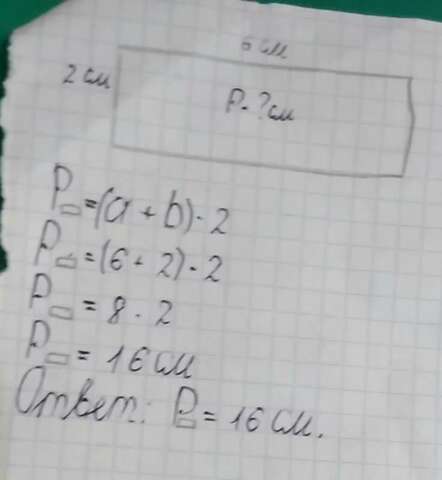 6 см
2 см
P-?см
P▭=(a+b)·2
P▭=(6+2)·2
P▭=8·2
P▭=16см
Ответ: P▭=16см.